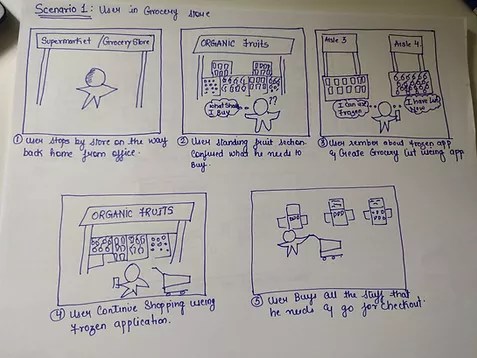 Scenario 1: User in Grocery store
Supermarket / Grocery Store
ORGANIC Fruits
what should
I Buy
??
Aisle 3
Aisle 4
I can use
Frozen
I have list
Now
① User stops by store on the way
back home from office.
② User standing fruit section
Confused what he needs to
Buy.
③ User rember about Frozen app
& Create Grocery list using app
ORGANIC FRUITS
④ User Continue Shopping using
Frozen application.
⑤ User Buys all the stuff that
he needs & go for checkout.